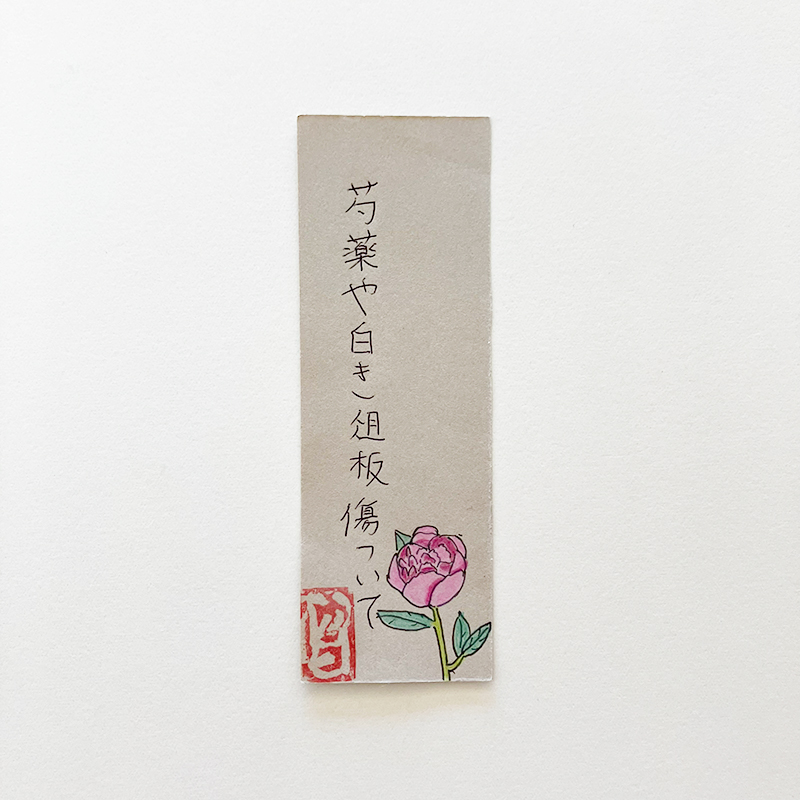 芍薬や白き俎板傷ついて